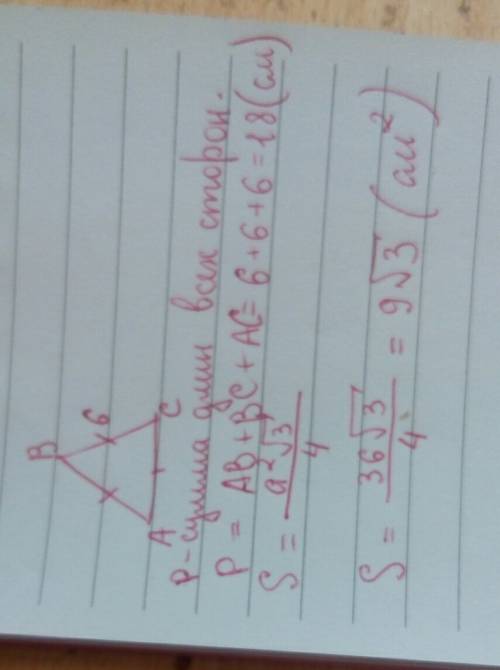 B
6
A C
P - сумма длин всех сторон.
P = AB + BC + AC = 6 + 6 + 6 = 18 (см)
S = a²√3 / 4
S = 36√3 / 4 = 9√3 (см²)